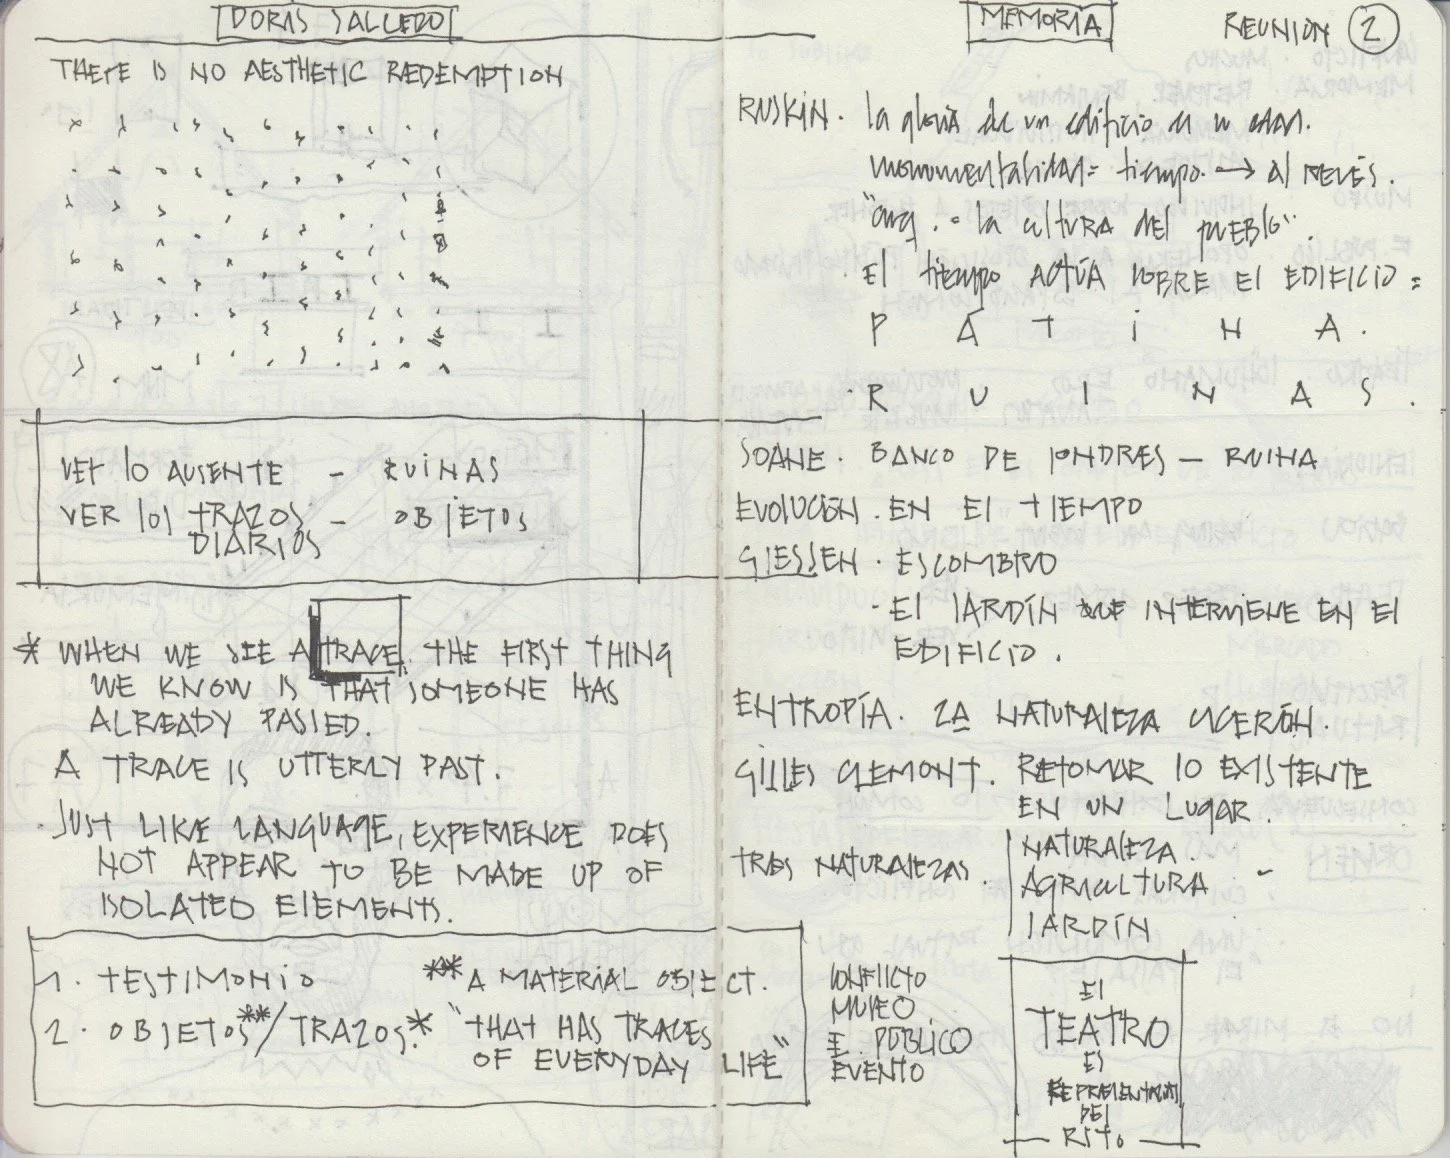 DORIS SALCEDO
THERE IS NO AESTHETIC REDEMPTION
VER lo AUSENTE - RUINAS
VER los TRAZOS - OBJETOS
DIARIOS
* WHEN WE SEE A TRACE, THE FIRST THING
WE KNOW IS THAT SOMEONE HAS
ALREADY PASSED.
A TRACE IS UTTERLY PAST.
. JUST LIKE LANGUAGE, EXPERIENCE DOES
NOT APPEAR TO BE MADE UP OF
ISOLATED ELEMENTS.
1. TESTIMONIO
2. OBJETOS**/TRAZOS.*
** A MATERIAL OBJECT.
"THAT HAS TRACES
OF EVERYDAY LIFE"
MEMORIA
REUNION 2
RUSKIN. la gloria de un edificio es su edad.
monumentalidad = tiempo. → al REVÉS.
"arq. = la cultura del PUEBLO".
. El tiempo ACTÚA SOBRE El EDIFICIO =
P A T I N A.
. R U I N A S .
SOANE. BANCO DE LONDRES - RUINA
EVOLUCIÓN. EN El TIEMPO
GIESSEN. ESCOMBRO
- El JARDÍN QUE INTERVIENE EN El
EDIFICIO.
ENTROPÍA. 2A NATURALEZA CICERÓN.
GILLES CLEMONT. RETOMAR lo EXISTENTE
EN UN LUGAR.
TRES NATURALEZAS.
NATURALEZA.
AGRICULTURA -
JARDÍN
CONFLICTO
MUSEO
E. PÚBLICO
EVENTO
El
TEATRO
ES
REPRESENTACIÓN
DEL
RITO